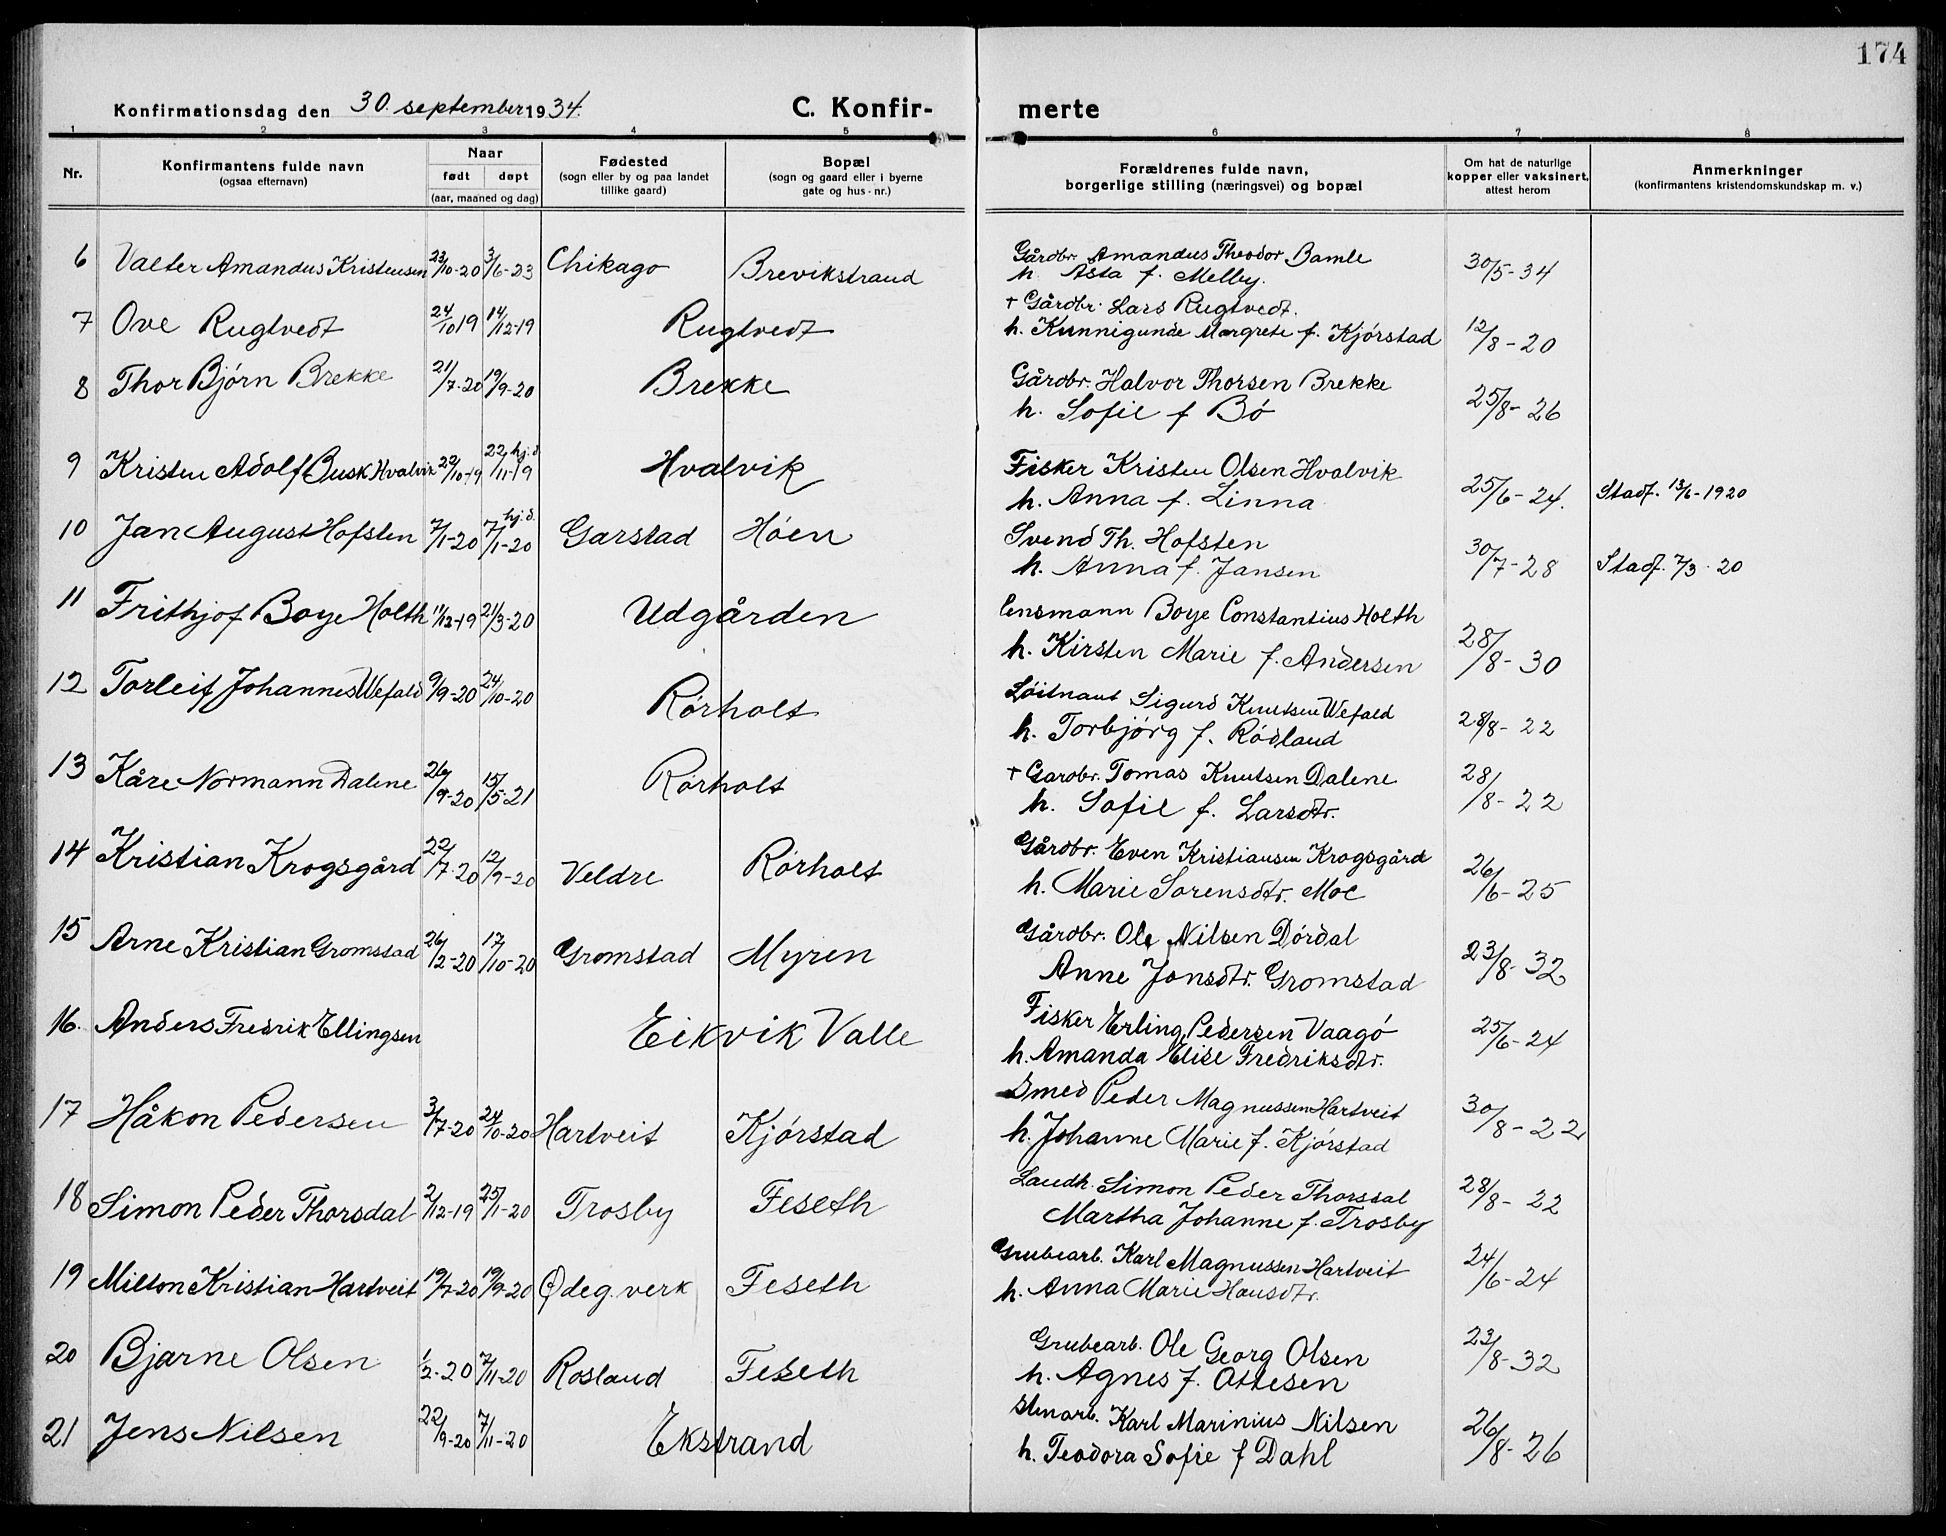 174
Konfirmationsdag den 30. september 1934. C. Konfir- merte
1 2 3 4 5 6 7 8
Nr. Konfirmantens fulde navn (ogsaa efternavn) Naar født døpt (aar, maaned og dag) Fødested (sogn eller by og paa landet tillike gaard) Bopæl (sogn og gaard eller i byerne gate og hus-nr.) Forældrenes fulde navn, borgerlige stilling (næringsvei) og bopæl Om hat de naturlige kopper eller vaksinert, attest herom Anmerkninger (konfirmantens kristendomskundskap m. v.)
6 Valter Amandus Kristensen 23/10-20 3/6-23 Chikago Brevikstrand Gårdbr. Amandus Theodor Bamle 30/5-34
h. Asta f. Melby.
7 Ove Rugtvedt 24/10 19 14/12-19 Rugtvedt + Gårdbr. Lars Rugtvedt.
h. Kunnigunde Margrete f. Kjørstad 12/8-20
8 Thor Bjørn Brekke 21/7-20 19/9-20 Brekke Gårdbr. Halvor Thorsen Brekke
h. Sofie f Bø 25/8-26
9 Kristen Adolf Busk Hvalvik 22/10-19 22/11-19 hj.d. Hvalvik Fisker Kristen Olsen Hvalvik
h. Anna f. Linna 25/6-24. Stadf. 13/6-1920
10 Jan August Hofsten 7/1-20 7/1-20 hj.d. Garstad Høen Svend Th. Hofsten
h. Anna f. Jansen 30/7-28 Stadf. 7/3-20
11 Frithjof Boye Holth 11/12-19 21/3-20 Udgården lensmann Boye Constantius Holth
h. Kirsten Marie f. Andersen 28/8-30
12 Torleif Johannes Wefald 9/9-20 24/10-20 Rørholt Løitnant Sigurd Knutsen Wefald
h. Torbjørg f. Rødland 28/8-22
13 Kåre Normann Dalene 26/9-20 15/5-21 Rørholt + Gardbr. Tomas Knutsen Dalene
h. Sofie f. Larsdtr. 28/8-22
14 Kristian Krogsgård 22/7-20 12/9-20 Veldre Rørholt Gårdbr. Even Kristiansen Krogsgård
h. Marie Sorensdtr. Moe 26/6-25
15 Arne Kristian Gromstad 26/2-20 17/10-20 Gromstad Myren Gårdbr. Ole Nilsen Dørdal
Anne Jonsdtr. Gromstad 23/8-32
16. Anders Fredrik Ellingsen Eikvik Valle Fisker Erling Pedersen Vaagø
h. Amanda Elise Fredriksdtr. 25/6-24
17 Håkon Pedersen 3/7-20 24/10-20 Hartveit Kjørstad Smed Peder Magnussen Hartveit
h. Johanne Marie f. Kjørstad 30/8-22
18 Simon Peder Thorsdal 2/12-19 25/1-20 Trosby Feseth Landh. Simon Peder Thorsdal
Martha Johanne f. Trosby 28/8-22
19 Milton Kristian Hartveit 19/7-20 19/9-20 Ødeg. verk Feseth Grubearb. Karl Magnussen Hartveit
h. Anna Marie Hansdtr. 24/6-24
20 Bjarne Olsen 1/2-20 7/11-20 Rosland Feseth Grubearb. Ole Georg Olsen
h. Agnes f. Ottesen 23/8-32
21 Jens Nilsen 22/9-20 7/11-20 Ekstrand Stenarb. Karl Marinius Nilsen
h. Teodora Sofie f Dahl 26/8-26